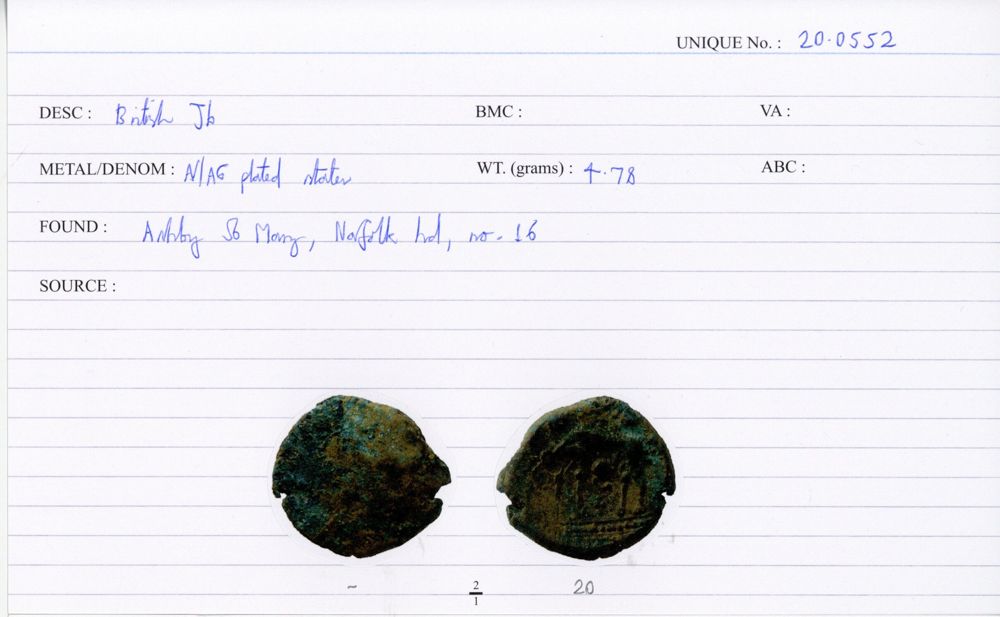 UNIQUE No. : 20.0552
DESC : British Jb BMC : VA :
METAL/DENOM : N/AE plated stater WT. (grams) : 4.78 ABC :
FOUND : Ashby St Mary, Norfolk hd, no. 16
SOURCE :
– 2/1 20